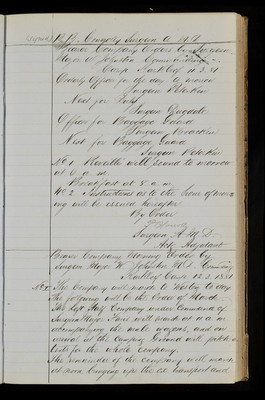 (signed) P. B. Connolly Surgeon A.M.D.
Bearer Company Orders by Surgeon
Major W. Johnston Commanding
Camp 11.3.81
Orderly Officer for the day to morrow
Surgeon
Next for Duty
Surgeon Dugdale
Officer for Baggage Guard
Surgeon
Next for Baggage Guard
Surgeon
No. 1 Reveille will sound to morrow
at 6 a.m.
Breakfast at 8 a.m.
No. 2 Instructions as to the hour of march-
ing will be issued hereafter
By Order
Surgeon A.M.D.
Actg. Adjutant
Bearer Company Morning Order by
Surgeon Major W. Johnston M.D. Commdg
Camp 12.3.81
No. 1 The Company will march to to day
The following will be the Order of March
The left Half Company under Command of
Surgeon Major will march at 10 a.m.
accompanying the mule wagons, and on
arrival at the Camping Ground will pitch
tents for the whole company
The remainder of the company will march
at noon bringing up the ox transport and